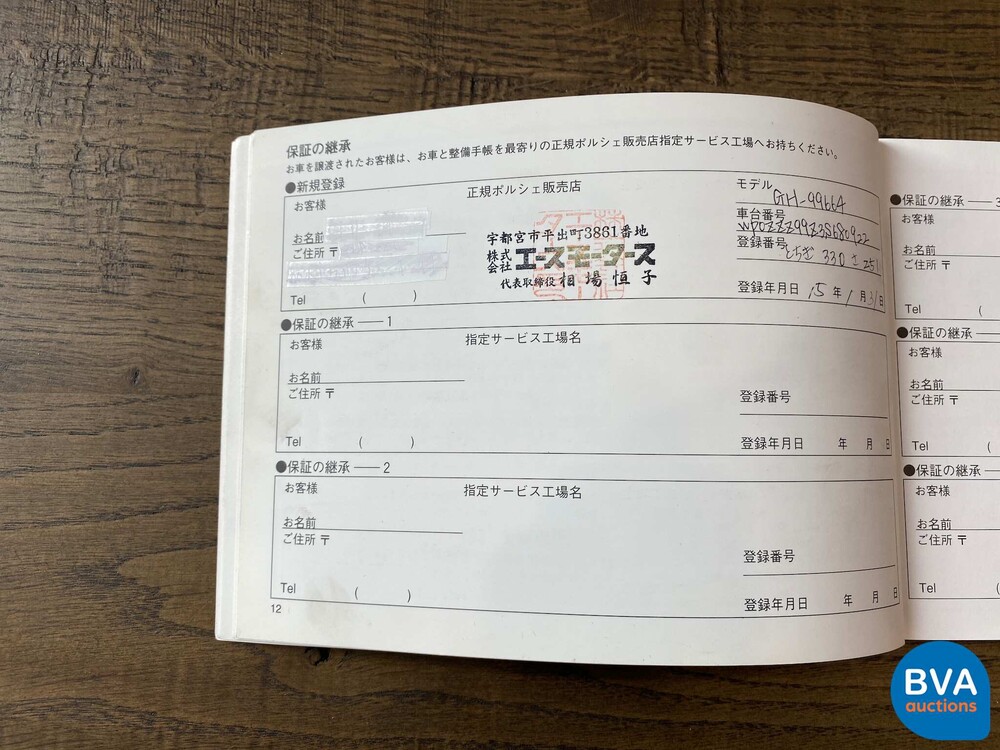 保証の継承
お車を譲渡されたお客様は、お車と整備手帳を最寄りの正規ポルシェ販売店指定サービス工場へお持ちください。
●新規登録
お客様
正規ポルシェ販売店
モデル GH-99664
車台番号
WP0ZZZ99Z3S680922
登録番号 とちぎ 330 さ 251
お名前
ご住所 〒
宇都宮市平出町3881番地
株式会社 エースモータース
代表取締役 相場恒子
Tel ( )
登録年月日 15年1月31日
●保証の継承 — 1
お客様
指定サービス工場名
お名前
ご住所 〒
登録番号
Tel ( )
登録年月日 年 月 日
●保証の継承 — 2
お客様
指定サービス工場名
お名前
ご住所 〒
登録番号
Tel ( )
登録年月日 年 月 日
12
●保証の継承 — 3
お客様
お名前
ご住所 〒
Tel (
●保証の継承 —
お客様
お名前
ご住所 〒
Tel (
●保証の継承 —
お客様
お名前
ご住所 〒
Tel (
BVA
auctions